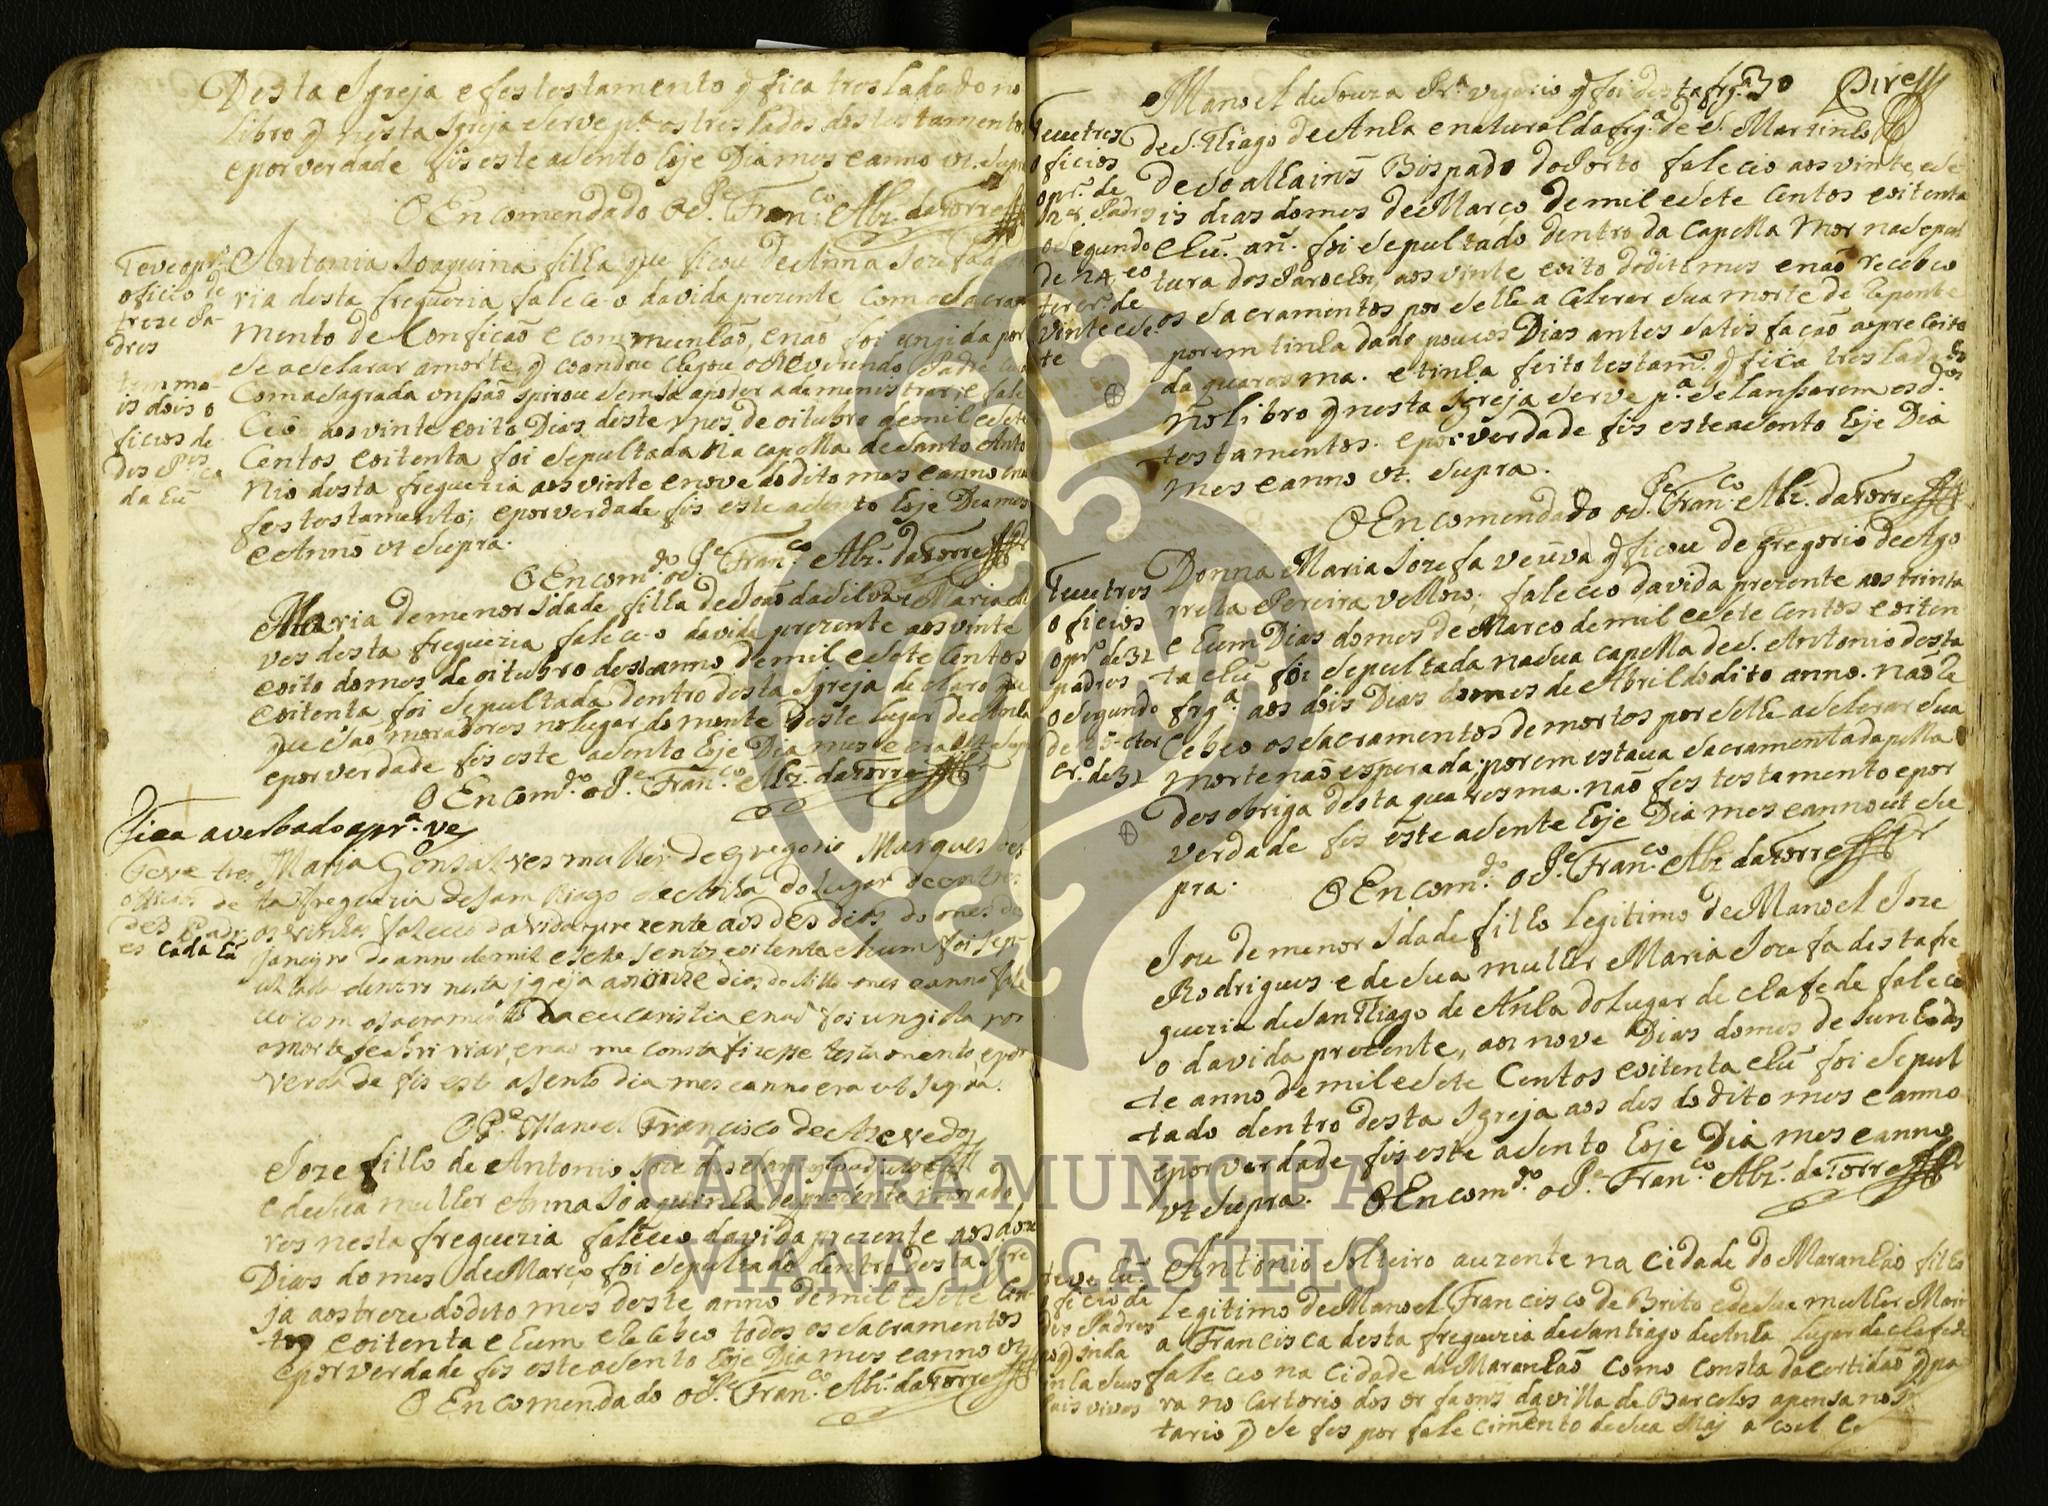 Desta Igreja e fes testamento q fica tresladado no
libro q nesta Igreja serve p.ª os treslados dos testamentos
e por verdade fis este asento hoje Dia mes e anno vt. supra
O Encomendado o P.e Fran.co Alz. da Torre
Teve o pr.º
oficio de
treze Pa-
dres
tem ma-
is dois o
ficios de
des P.es ca
da hũ
Antonia Joaquina filha que ficou de Anna Jozefa
ria desta freguezia falece-o da vida prezente com o Sacra
mento de Confição e communhão, e nao foi ungida por
se aselarar a morte, q coando chegou o Reverendo Padre
Com a Sagrada unssão spirou sem lha poder ademenistrar; e fale
Ceo aos vinte e oito Dias deste mes de oitubro de mil e sete
Centos e oitenta foi sepultada na capella de Santo Anto
Nio desta freguezia aos vinte e nove do dito mes e anno
fes testamento; e por verdade fis este asento hoje Dia mes
e Anno vt supra.
O Encom.do o P.e Fran.co Alz. da Torre
Maria de menor Idade filha de João da Silva e Maria
ves desta freguezia falece-o da vida prezente aos vinte
e oito do mes de oitubro deste anno de mil e sete centos
e oitenta foi sepultada dentro desta Igreja de
que são moradores no lugar do monte deste lugar de Anha
e por verdade fis este asento hoje Dia mes e era vt supra
O Encom.do o P.e Fran.co Alz. da Torre
Fica averbado a pr.ª ves
Teve tres
oficios de
des Padr
es cada hũ
Maria Gonsalves mulher de Gregorio Marques des
ta freguezia de Sam Thiago de Anha do lugar de entre
os faleceo da vida prezente aos des dias do mes de
Janeiro do anno de mil e sete sentos e oitenta e hum foi sep-
ultada dentro nesta igreja aos onze dias do dito mes e anno fale
ceo com o sacramento da eucaristia e nao foi ungida por
a morte e nao me consta fizesse testamento e por
verdade fis este asento dia mes e anno era ut supra.
O P.e Manoel Francisco de Azevedo
Joze filho de Antonio Joze
e de sua mulher Anna Joaquinha de prezente morado
res nesta freguezia faleceo da vida prezente aos doze
Dias do mes de Março foi sepultado dentro desta Igre
ja aos treze do dito mes deste anno de mil e sete cen-
tos e oitenta e hum e recebeo todos os sacramentos
e por verdade fis este asento hoje Dia mes e anno vt
O Encomendado o P.e Fran.co Alz. da Torre
30 Pires
Teue tres
oficios
o pr.º de
Padres
o segundo
de 24 e o
tercr.º de
vinte e se-
te
Manoel de Souza Pr.ª vegario q foi desta frg.ª
de S. Thiago de Anha e natural da frg.ª de S. Martinho
de Soalhains Bispado do Porto faleceo aos vinte e se
is dias do mes de Março de mil e sete centos e oitenta
e hũ an. foi sepultado dentro da Capella Mor na sepul
tura dos Parochos, aos vinte e oito do dito mes e não recebeo
os sacramentos por se lhe acelerar sua morte de repente
porem tinha dado poucos Dias antes satisfação ao preceito
da quaresma. e tinha feito testam.to q fica treslad.do
No libro q nesta Igreja serve p.ª se lansarem os d.os
testamentos. e por verdade fis este asento hoje Dia
mes e anno vt. supra.
O Encomendado o P.e Fran.co Alz. da Torre
Teue tres
oficios
o pr.º de 32
padres
o segundo
de 25 o ter
cr.º de 32
Donna Maria Jozefa veuva q ficou de Gregorio de Ago
rreta Pereira velloso; faleceo da vida prezente aos trinta
e hum Dias do mes de Marco de mil e sete centos e oiten
ta e hũ foi sepultada na sua capella de S. Antonio desta
frg.ª aos dois Dias do mes de Abril do dito anno. não re
Cebeo os sacramentos de mortos por se lhe aselerar sua
morte não esperada; porem estaua sacramentada pella
desobriga desta quaresma. não fes testamento e por
verdade fis este asento hoje Dia mes e anno ut su
pra.
O Encom.do o P.e Fran.co Alz. da Torre
Joze de menor Idade filho legitimo de Manoel Joze
Rodrigues e de sua mulher Maria Jozefa desta fre
guezia de San Thiago de Anha do lugar de chafe de falece
o da vida prezente, aos nove Dias do mes de Junho des
te anno de mil e sete Centos e oitenta e hũ foi sepul
tado dentro desta Igreja aos des do dito mes e anno
e por verdade fis este asento hoje Dia mes e anno
vt supra.
O Encom.do o P.e Fran.co Alz. da Torre
teve hũ
oficio de
des Padres
inda
tinha seus
pais vivos
Antonio solteiro auzente na Cidade do Maranhão filho
legitimo de Manoel Francisco de Brito e de sua mulher Mari
a Francisca desta freguezia de Santiago de Anha lugar de chafe de
faleceo na Cidade do Maranhão como consta da certidão q pa
ra no Cartorio dos orfaons da villa de Barcelos apensa no
tario q se fes por falecimento de sua Mãj a coal
CÂMARA MUNICIPAL
VIANA DO CASTELO